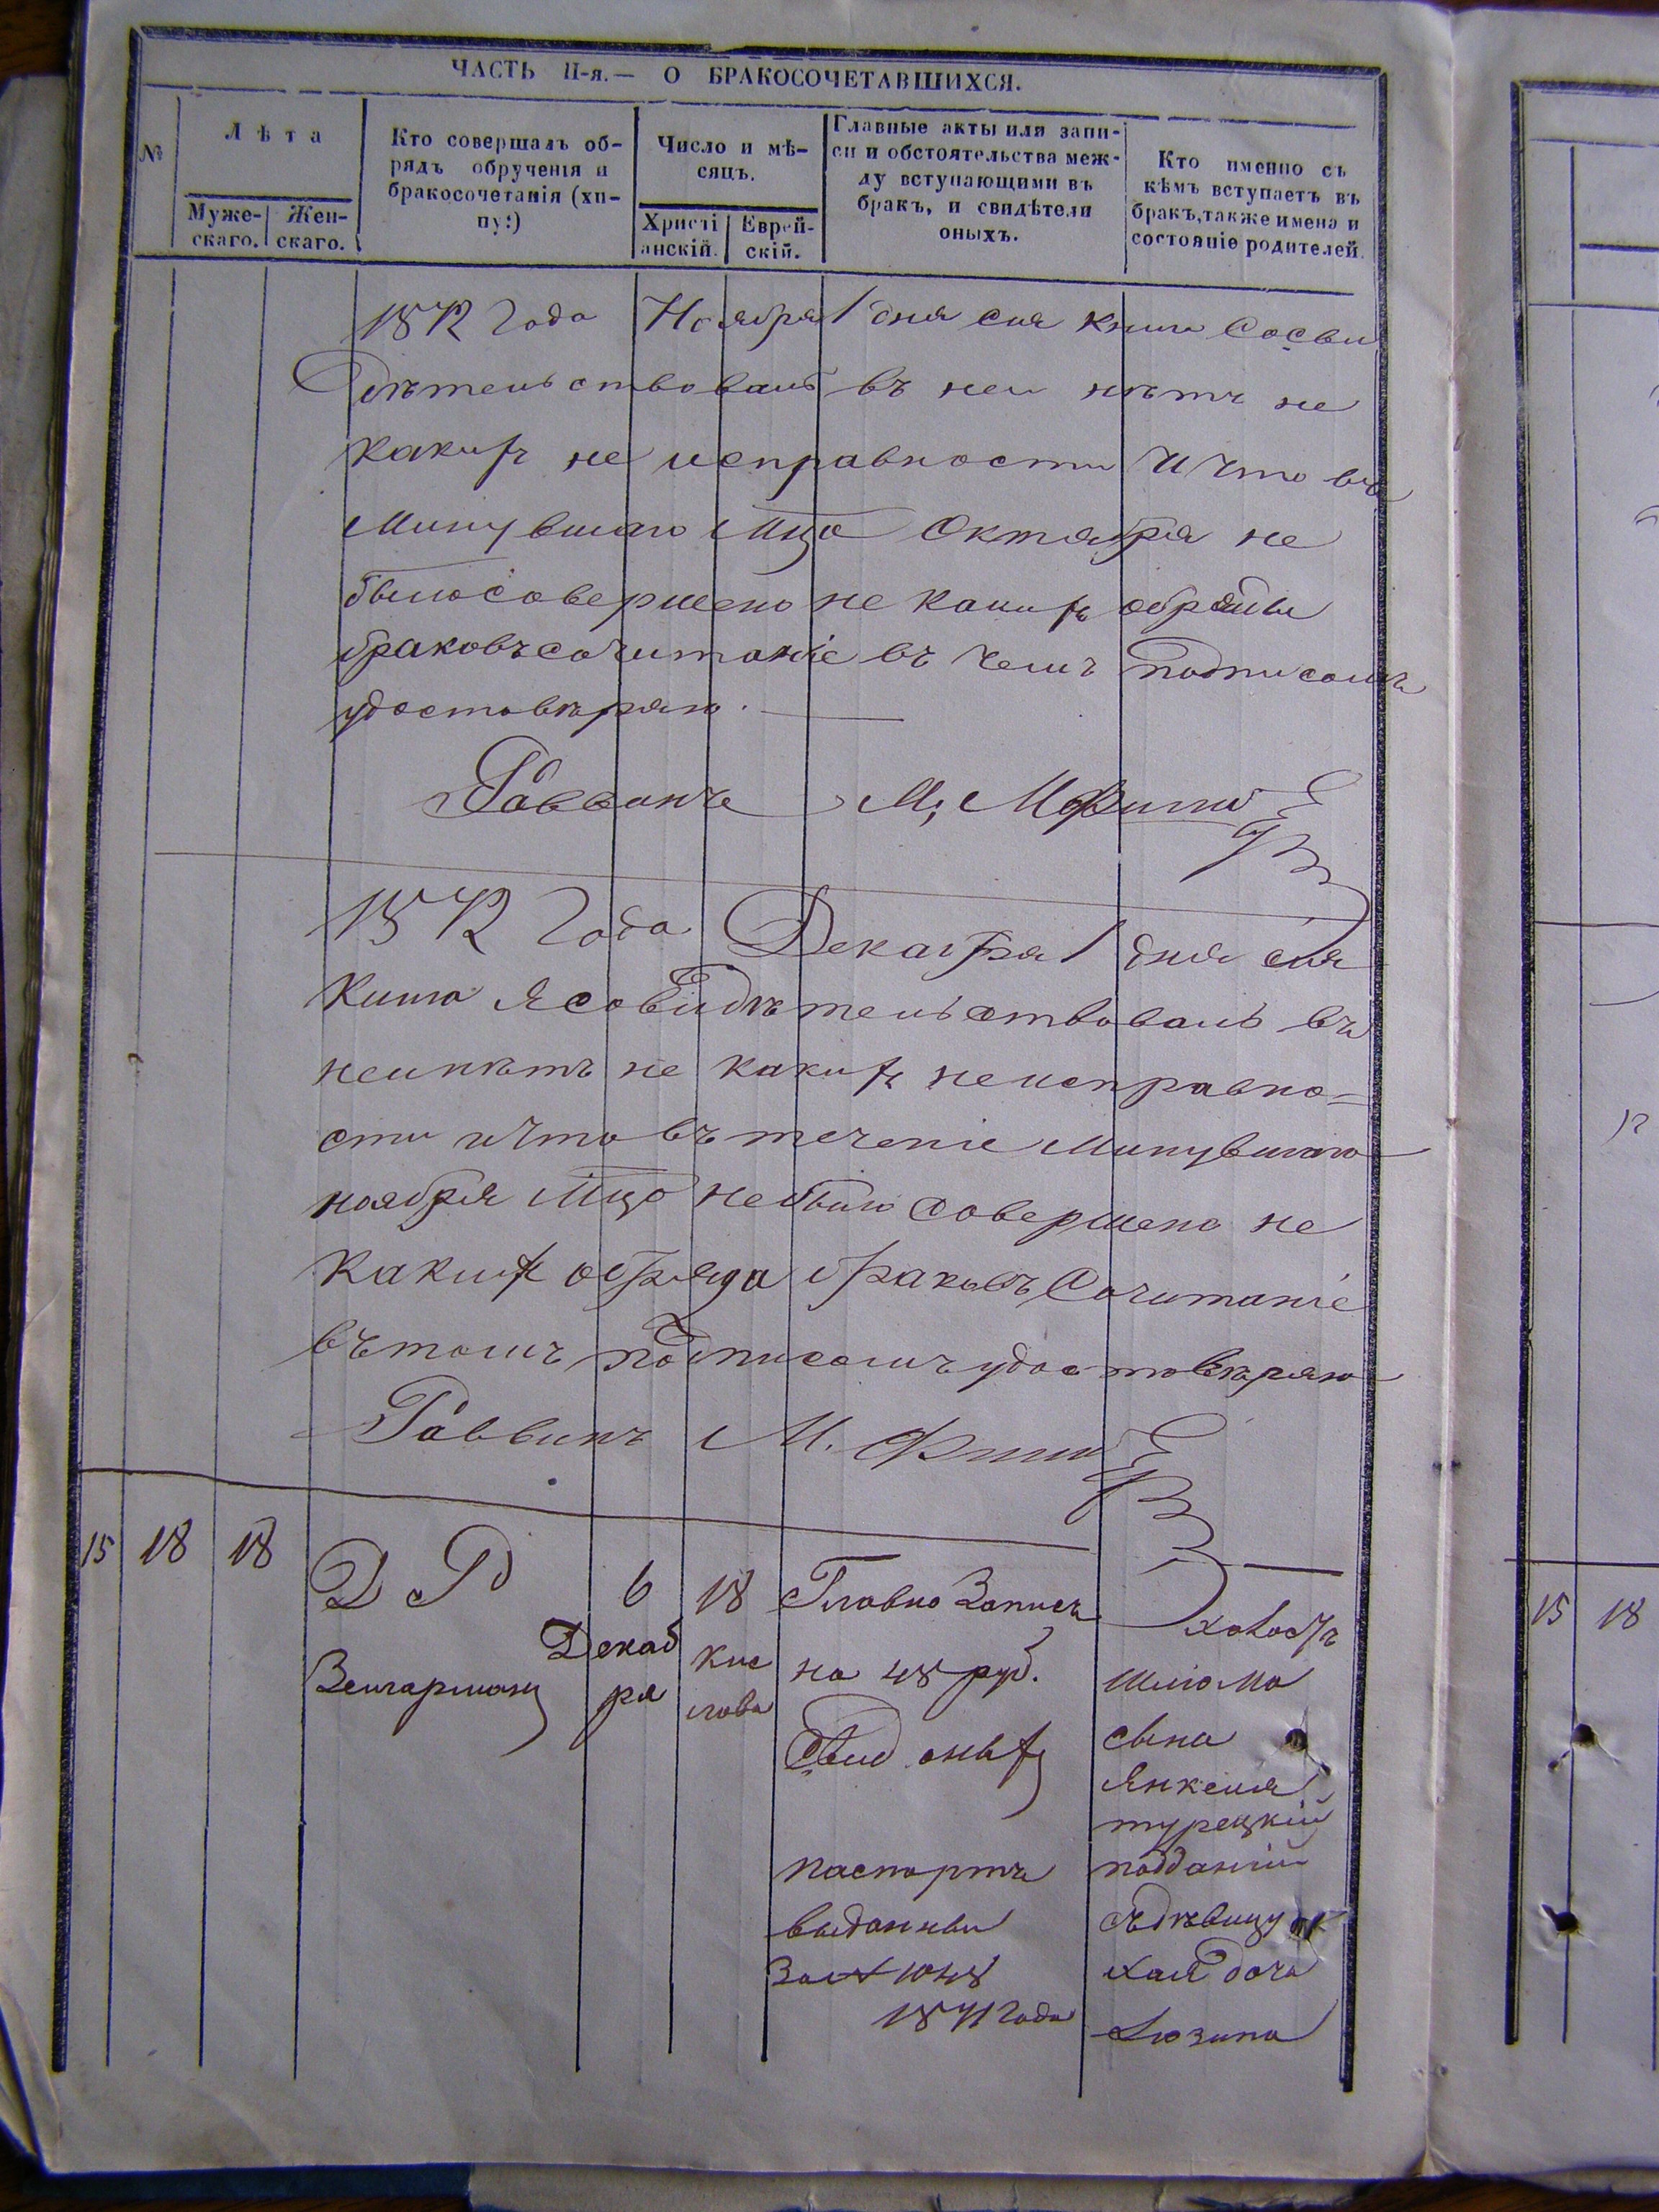 ЧАСТЬ II-я.— О БРАКОСОЧЕТАВШИХСЯ.
№
Лѣта
Муже-
скаго.
Жен-
скаго.
Кто совершалъ об-
рядъ обрученія и
бракосочетанія (хи-
пу:)
Число и мѣ-
сяцъ.
Христі
анскій.
Еврей-
скій.
Главные акты или запи-
си и обстоятельства меж-
ду вступающими въ
бракъ, и свидѣтели
оныхъ.
Кто именно съ
кѣмъ вступаетъ въ
бракъ, также имена и
состояніе родителей.
1872 Года Ноября 1 дня сия книга Сосви
дѣтельствовалъ въ неи нѣтъ не
какихъ не исправности И что въ
Минувшаго Мца Октября не
было совершено не какихъ обряды
браковъсочитаніе въ чемъ подписомъ
удостовѣряю.
Раввинъ М.
1872 Года Декабря 1 дня сия
Книга Я совидѣтельствовалъ въ
неи нѣтъ не какихъ неисправно=
сти и что въ теченіе Минувшаго
ноября Мца небыло совершено не
какихъ обряда браковъ Сочитаніе
въ томъ подписомъ удостовѣряю
Раввинъ М.
15
18
18
Д Р
6
Декаб
ря
18
кис
лова
Главно Запись
на 48 руб.
Свид оныхъ
паспортъ
выданны
За № 1048
1871 Года
Шлома
сына
Янкеля
турецкій
подданій
сѣдѣвицу
Хая дочь
Люзина
15
18